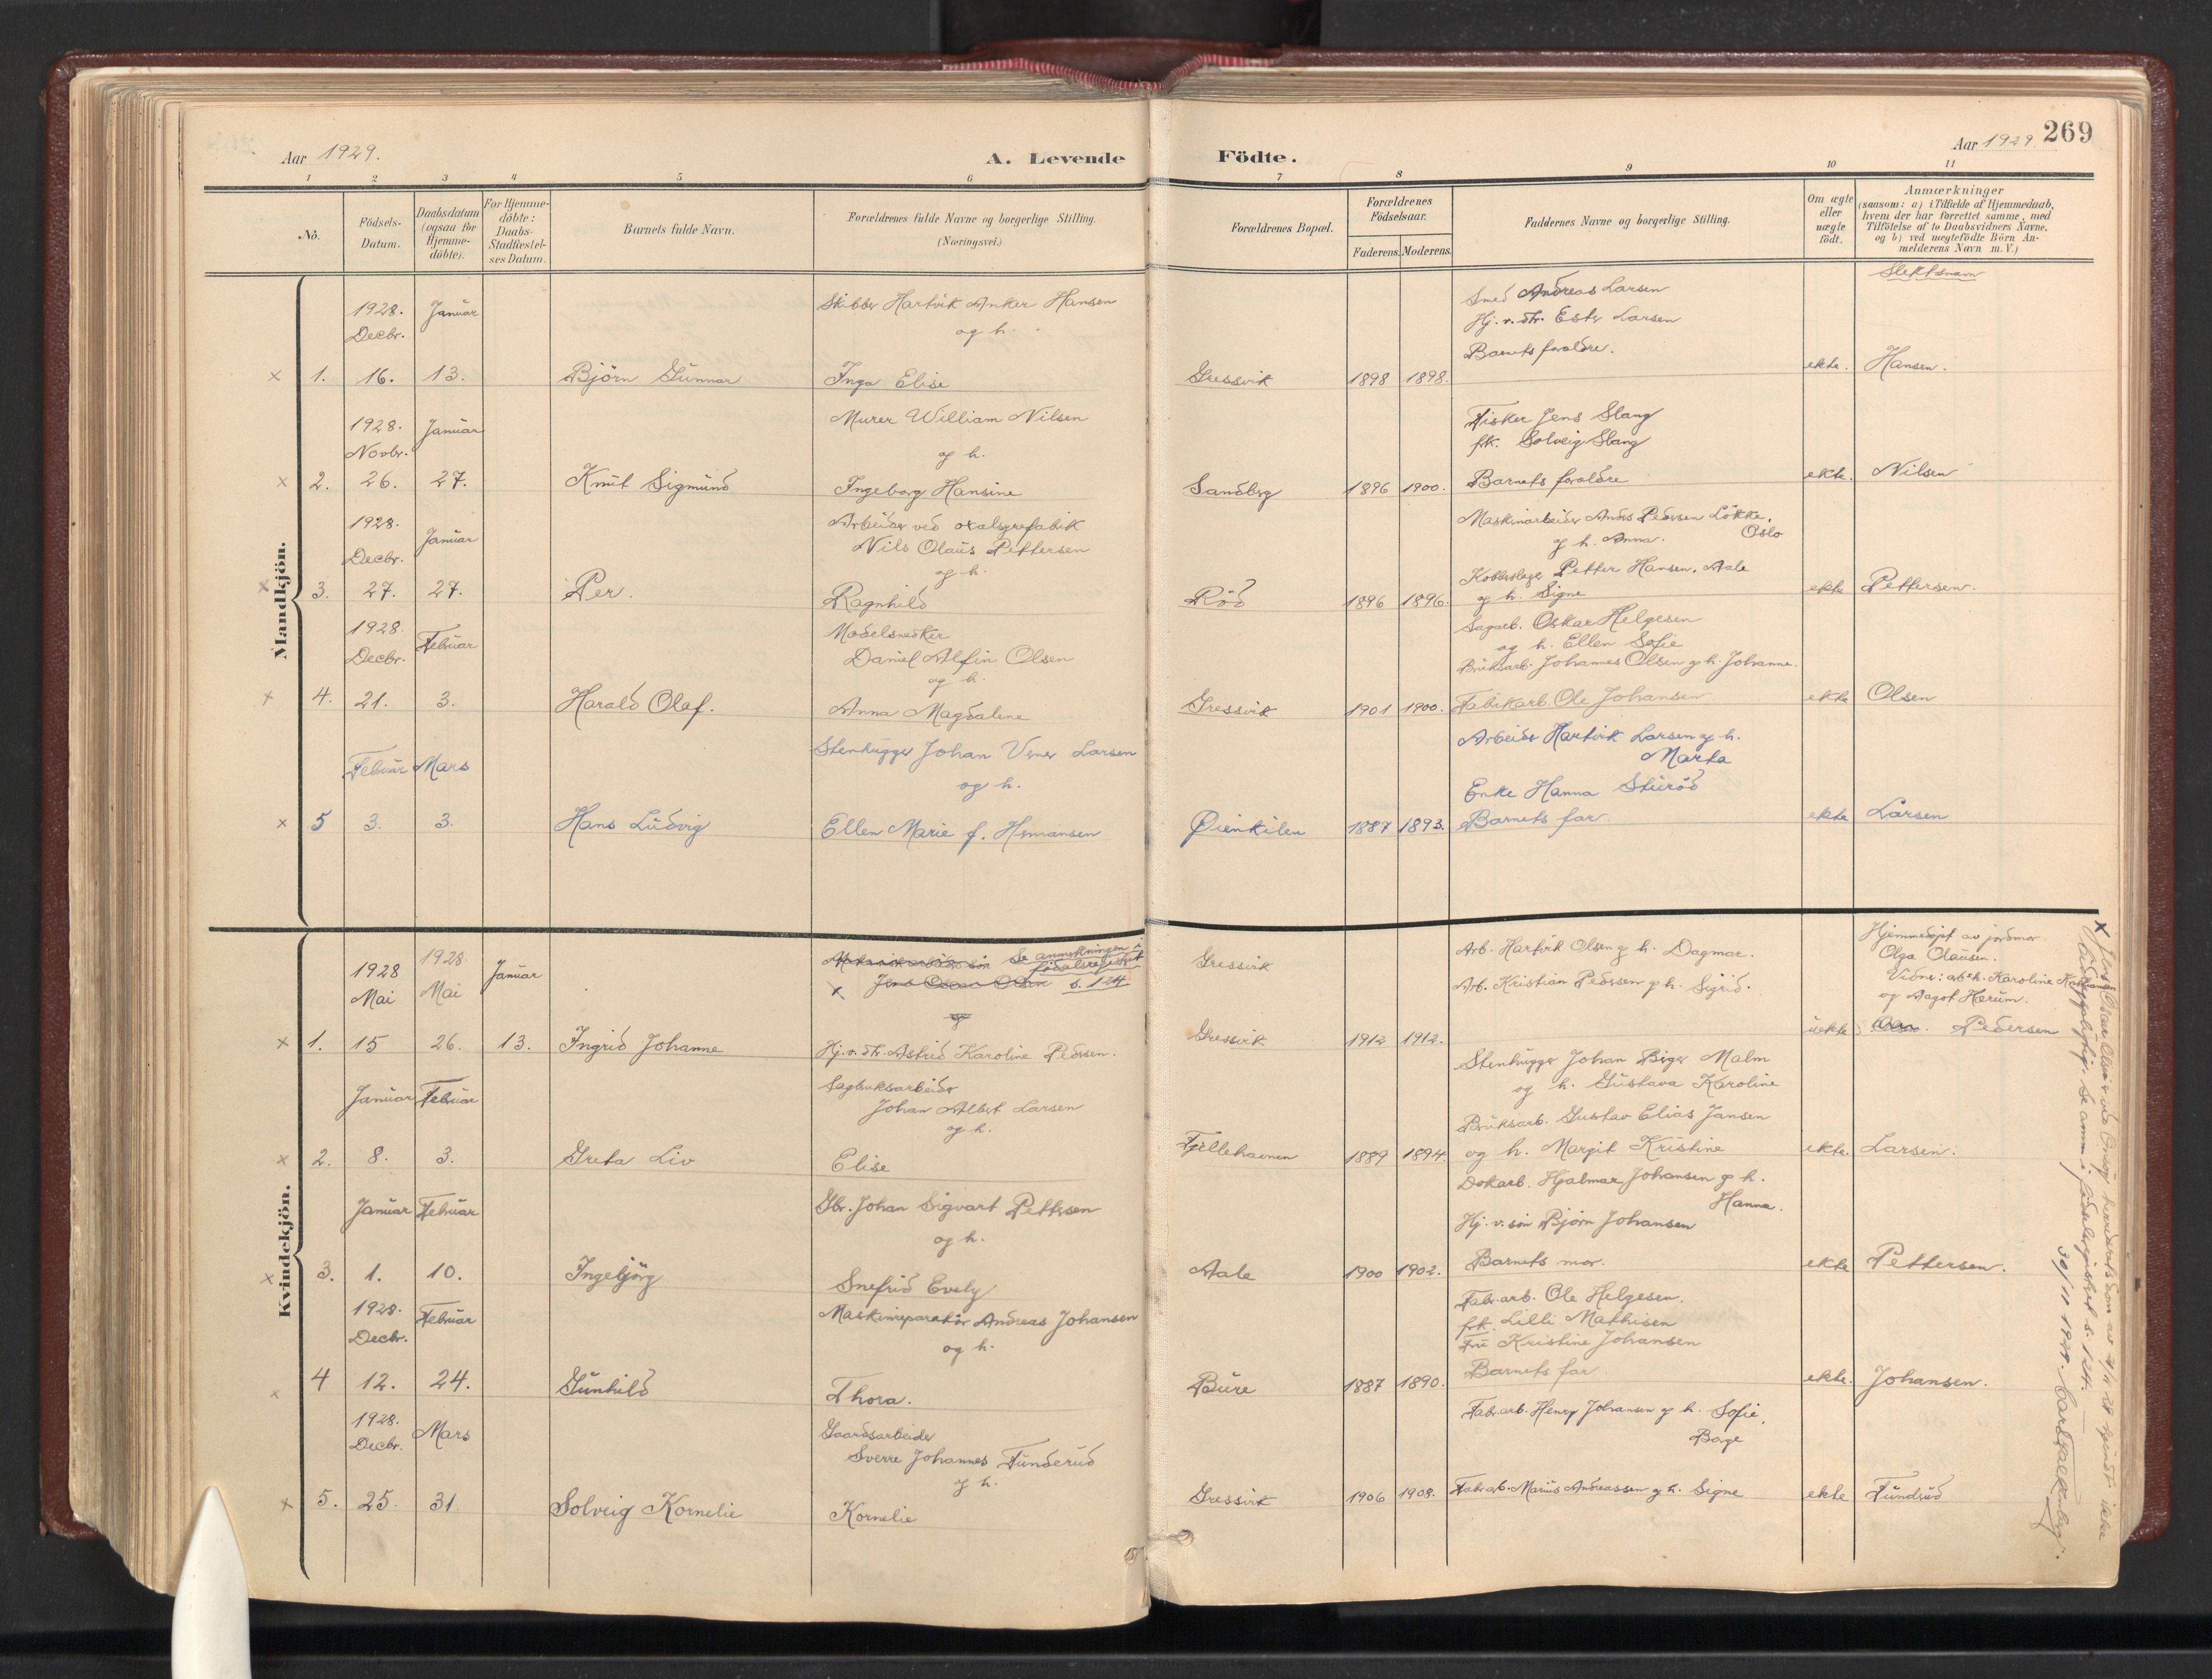 Aar 1929.
A. Levende
1 2 3 4 5 6
No.
Födsels-
Datum.
Daabsdatum
(ogsaa for
Hjemme-
döbte).
For Hjemme-
döbte:
Daabs-
Stadfæstel-
ses Datum.
Barnets fulde Navn.
Forældrenes fulde Navne og borgerlige Stilling.
(Næringsvei.)
Mandkjön.
1928. Januar
Decbr.
Skibbr Hartvik Anker Hansen
og h.
× 1. 16. 13. Björn Gunnar Inga Elise
1928. Januar
Novbr.
Murer William Nilsen
og h.
× 2. 26. 27. Knut Sigmund Ingeborg Hansine
1928. Januar
Decbr.
Arbeider ved oxalsyrefabrik
Nils Olaus Pettersen
og h.
× 3. 27. 27. Per. Ragnhild
1928. Februar
Decbr.
Modelsnedker
Daniel Alfin Olsen
og h.
× 4. 21. 3. Harald Olaf. Anna Magdalene
Februar Mars
Stenhugger Johan Verner Larsen
og h.
× 5 3. 3. Hans Ludvig Ellen Marie f. Hermansen
Kvindekjön.
1928 1928 Januar
Mai Mai
Se anmerkningen i
födselsregistret
× Jens Oscar Olsen s. 124
og
× 1. 15 26. 13. Ingrid Johanne Hj.v.dtr. Astrid Karoline Pedersen.
Januar Februar
Sagbruksarbeider
Johan Albert Larsen
og h.
× 2. 8. 3. Greta Liv Elise
Januar Februar
Gbr. Johan Sigvart Pettersen
og h.
× 3. 1. 10. Ingebjörg Snefrid Evely
1928. Februar
Decbr.
Maskinreparatör Andreas Johansen
og h.
× 4 12. 24. Gunhild Thora.
1928. Mars
Decbr.
Gaardsarbeider
Sverre Johannes Funderud
og h.
× 5. 25. 31 Solveig Kornelie Kornelie
Födte.
Aar 1929. 269
7 8 9 10 11
Forældrenes Bopæl.
Forældrenes
Födselsaar.
Faderens. Moderens.
Faddernes Navne og borgerlige Stilling.
Om ægte
eller
uægte
födt.
Anmærkninger
(saasom: a) i Tilfælde af Hjemmedaab,
hvem der har forrettet samme, med
Tilföielse af to Daabsvidners Navne,
og b) ved uægtefödte Börn An-
melderens Navn m. V.)
Slektsnavn
Smed Andreas Larsen
Hj. v. dtr. Ester Larsen
Barnets foreldre.
Gressvik 1898 1898. ekte. Hansen.
Fisker Jens Slang
frk. Solveig Slang
Sandberg 1896 1900. Barnets foreldre ekte. Nilsen
Maskinarbeider Anders Pedersen Lökke,
og h. Anna. Oslo
Kobberslager Petter Hansen, Aale
Röd 1896 1896. og h. Signe ekte Pettersen.
Sagarb. Oskar Helgesen
og h. Ellen Sofie
Bruksarb. Johannes Olsen og h. Johanne.
Gressvik 1901 1900. Fabrikarb. Ole Johansen ekte Olsen
Arbeider Hartvik Larsen og h.
Marta
Enke Hanna Sturöd
Øienkilen 1887 1893. Barnets far ekte Larsen
Gressvik
Arb. Hartvik Olsen og h. Dagmar.
Arb. Kristian Pedersen og h. Sigrid.
Hjemmedöpt av jordmor
Olga Olausen.
Vidner: arb.h. Karoline
og Aagot Hærum.
Gressvik 1912 1912. uekte Olsen. Pedersen
Stenhugger Johan Biger Malm
og h. Gustava Karoline
Bruksarb. Gustav Elias Jansen
Fjellehavnen 1889 1894. og h. Margit Kristine ekte. Larsen.
Dokarb. Hjalmar Johansen og h.
Hanna.
Hj. v. sön Björn Johansen
Aale 1900 1902. Barnets mor. ekte Pettersen.
Fabr.arb. Ole Helgesen.
frk. Lilli Mathisen
Fru Kristine Johansen
Bure 1887 1890. Barnets far. ekte. Johansen.
Fabr.arb. Henry Johansen og h. Sofie,
Bage
Gressvik 1906 1908. Fabr.arb. Marius Andreassen og h. Signe ekte Funderud
× Jens Oscar Olsen er ved Onsöy herredsrets dom av 4/11 29 kjendt ikke
bidragspligtig. Se anm. i födselsregistret s. 124.
30/11 1929.